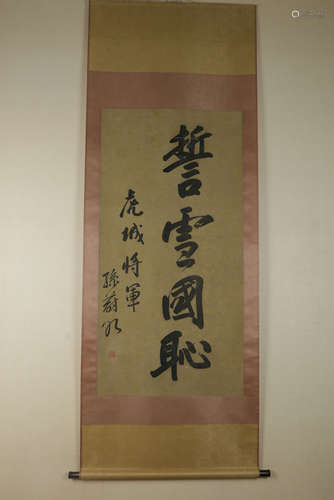 誓雪國恥
虎城將軍
孫蔚如